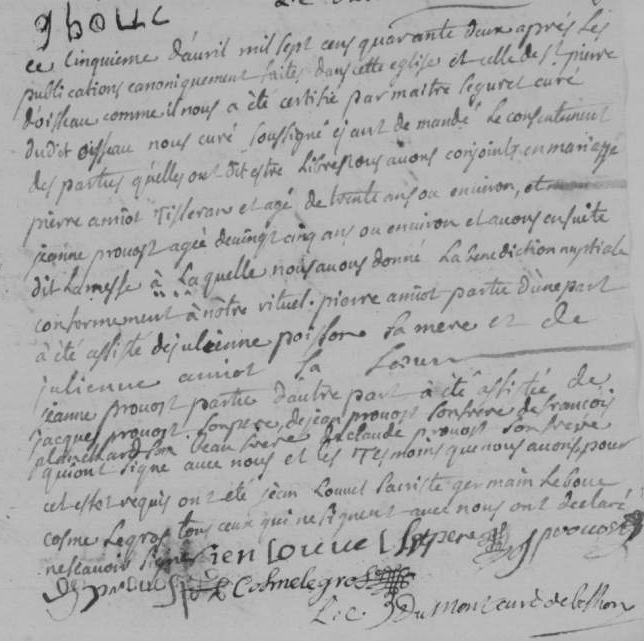 g boue
ce cinquieme davril mil sept cens quarante deux après les
publications canoniquement faites dans cette eglise et celle de st pierre
doisseau comme il nous a été certifié par maitre seguret curé
dudit oisseau nous curé soussigné ejant demandé le consentement
des parties qu'elles ont dit estre libres nous avons conjoints en mariage
pierre amiot tisseran et agé de trente ans ou environ, et
jeanne provost agée de vingt cinq ans ou environ et avons ensuite
dit la messe à laquelle nous avons donné la benediction nuptiale
conformement à nôtre rituel. pierre amiot partie d'une part
à été assisté de julienne poisson sa mere et de
julienne amiot sa soeur
jeanne provost partie d'autre part à été assistée de
jacques provost son pere, de jean provost son frere de francois
planchard son beau frere de claude provost son frere
qui ont signé avec nous et les tesmoins que nous avons pour
cet effet requis ont été jean louuel sacriste germain leboue
cosme legros tous ceux qui ne signent avec nous ont declaré
ne scavoir signer ien louuel provost
Cosme legros
Dumont curé de